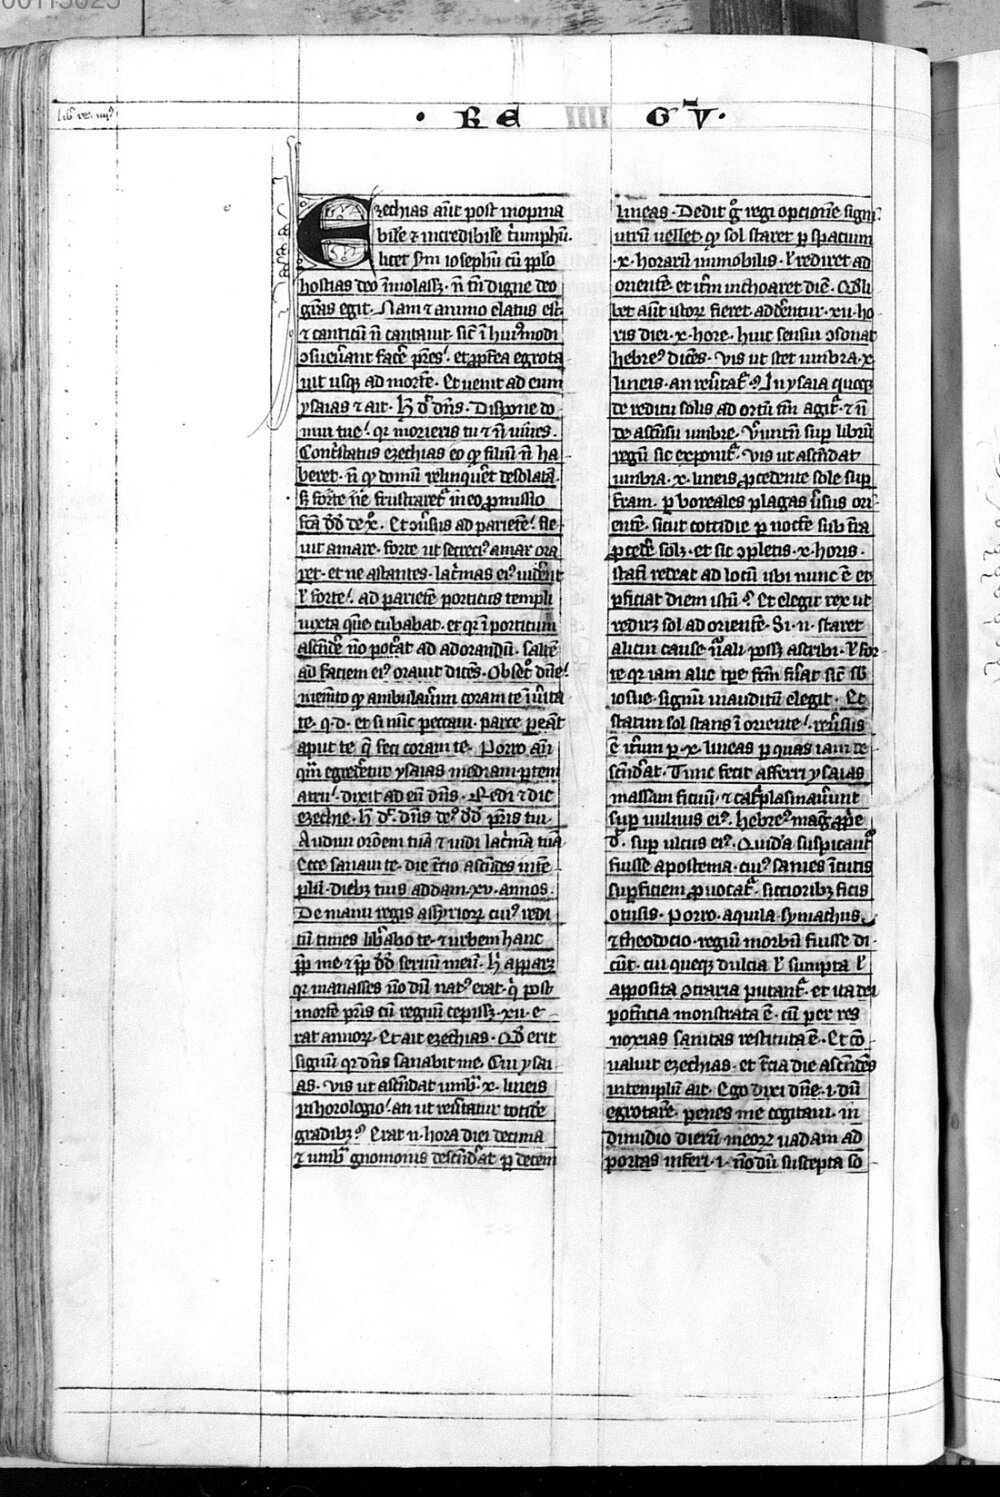 00113025
· RE IIII GṼ ·
Ezechias aũt post inopina
bile ⁊ incredibile t̾umphũ.
licet s̃m iosephũ cũ pp̃lo
hostias deo ĩmolass; ñ tñ digne deo
gr̃as egit. Nam ⁊ animo elatus est
⁊ canticũ ñ cantauit. sic̃ ĩ hui⁹modi
ↄsueuãnt fac̃e pr̃es. et ꝓpt̃ea egrota
uit usq; ad mort̃e. Et uenit ad eum
ysaias ⁊ ait. h̃ d̃t dñs. Dispone do
mui tue! qr morieris tu ⁊ ñ uiues.
Cont̾status ezechias eo qꝫ filiũ ñ ha
beret. ñ qꝫ domũ relinqueret desolatã.
s; forte ñe frustraret᷑ ĩ eo ꝓmissio
sc̃a d̃d de x̃. Et ↄũsus ad pariet̃e! fle
uit amare. forte ut secreci⁹ amar̃ ora
ret. et ne astantes. lac̾mas ei⁹ uiderẽt
ł forte! ad pariet̃e porticus templi
iuxta quẽ cubabat. et qr ĩ porticum
asc̃nde᷑ ñõ pot̾at ad adorandũ. salt̃e
ad faciem ei⁹ orauit dicẽs. Obsec̾ dñe!
mem̃to qꝫ ambulau̾im coram te ĩ u̾ita
te. q.d. et si nũc peccaui. parce p̱ eãt
aput te q̃ feci coram te. Porro añ
qm̃ egredet᷑ ysaias mediam p̱tem
atrii! dixit ad eũ dñs. Redi ⁊ dic
ezechie. h̃ d̃t. dñs de⁹ d̃d pr̃is tui.
Audiui or̃oem tuã ⁊ uidi lac̾mã tuã
Ecce sanaui te. die t̃cio ascẽdes in te᷑
pl̃m. dieb; tuis addam. xv. annos.
De manu regis assyrioꝝ cui⁹ redi
tũ times lib̾abo te. ⁊ urbem hanc
pp̃ me ⁊ pp̃ d̃d seruũ meũ. h̾ apparꝫ
qr manasses ñõ dũ nat⁹ erat. q̾ post
morte᷑ pr̃is cũ regnũ cepiss; .xii. e
rat annoꝝ. Et ait ezechias. Qd̃ erit
signũ qr dñs sanabit me. Cui ysai
as. Vis ut asc̃ndat umb̾. x. lineis
in horologio! an ut reũtatur totide᷑
gradib; ? Erat .n. hora diei decima
⁊ umb̾ gnomonis desc̃nd̾at p̱ decem
lineas. Dedit g̊ regi opcione᷑ signi
utrũ uellet. qꝫ sol staret p̱ spatium
.x. horarũ immobilis. ł rediret ad
orient̃e. et it̾m inchoaret die᷑. Qd̃li
bet aũt istoꝝ fieret addẽntur .xii. ho
ris diei .x. hore. huic sensui ↄsonat
hebre⁹ dicẽs. vis ut stet umbra .x.
lineis. an reũtat᷑ ? In ysaia quoq;
de reditu solis ad ortũ tm̃ agit᷑. ⁊ ñ
de asc̃nsu umbre. Vũntñ sup̱ librũ
regũ sic exponit᷑. Vis ut asc̃ndat
umbra. x. lineis ꝓcedente sole sup̱
t̾ram. p̱ boreales plagas ũsus ori
ent̃e. sicut cottidie p̱ nocte᷑ sub t̾ra
ꝓcede᷑ sol;. et sic ↄpletis .x. horis.
stati᷑ redeat ad locũ ubi nunc ẽ et
p̱ficiat diem istũ ? Et elegit rex ut
redirꝫ sol ad oriente᷑. Si .n. staret
alicui cause nãli poss; ascribi. ł for
te qr iam alic̾ tp̃e fc̃m fu̾at sic̃ sb
iosue. signũ inauditũ elegit. Et
statim sol stans ĩ oriente! reũsus
ẽ it̾um p̱ .x. lineas p̱ quas iam de
sc̃nd̾at. Tunc fecit afferri ysaias
massam ficuũ. ⁊ cat̾plasmau̾unt
sup̱ uulnus ei⁹. hebre⁹ mag̾ apte
d̃t. sup̱ ulcus ei⁹. Quidã suspicant᷑
fuisse apostema. cui⁹ sanies ĩcutis
sup̱ficiem ꝓuocat᷑. siccioribꝫ ficis
otusis. Porro aquila symachus
⁊ theodocio. regiũ morbũ fuisse di
cũt. cui queq; dulcia ł sumpta ł
apposita ↄtraria putant᷑. et ita dei
pote᷑ncia monstrata ẽ. cũ per res
noxias sanitas restituta ẽ. Et cõ
ualuit ezechias. et t̃cia die ascẽdẽs
in templũ ait. Ego dixi dñe. i. dũ
egrotare᷑. penes me cogitaui. in
dimidio dierũ meoꝝ uadam ad
portas inferi. i. ñõ dũ suscepta so